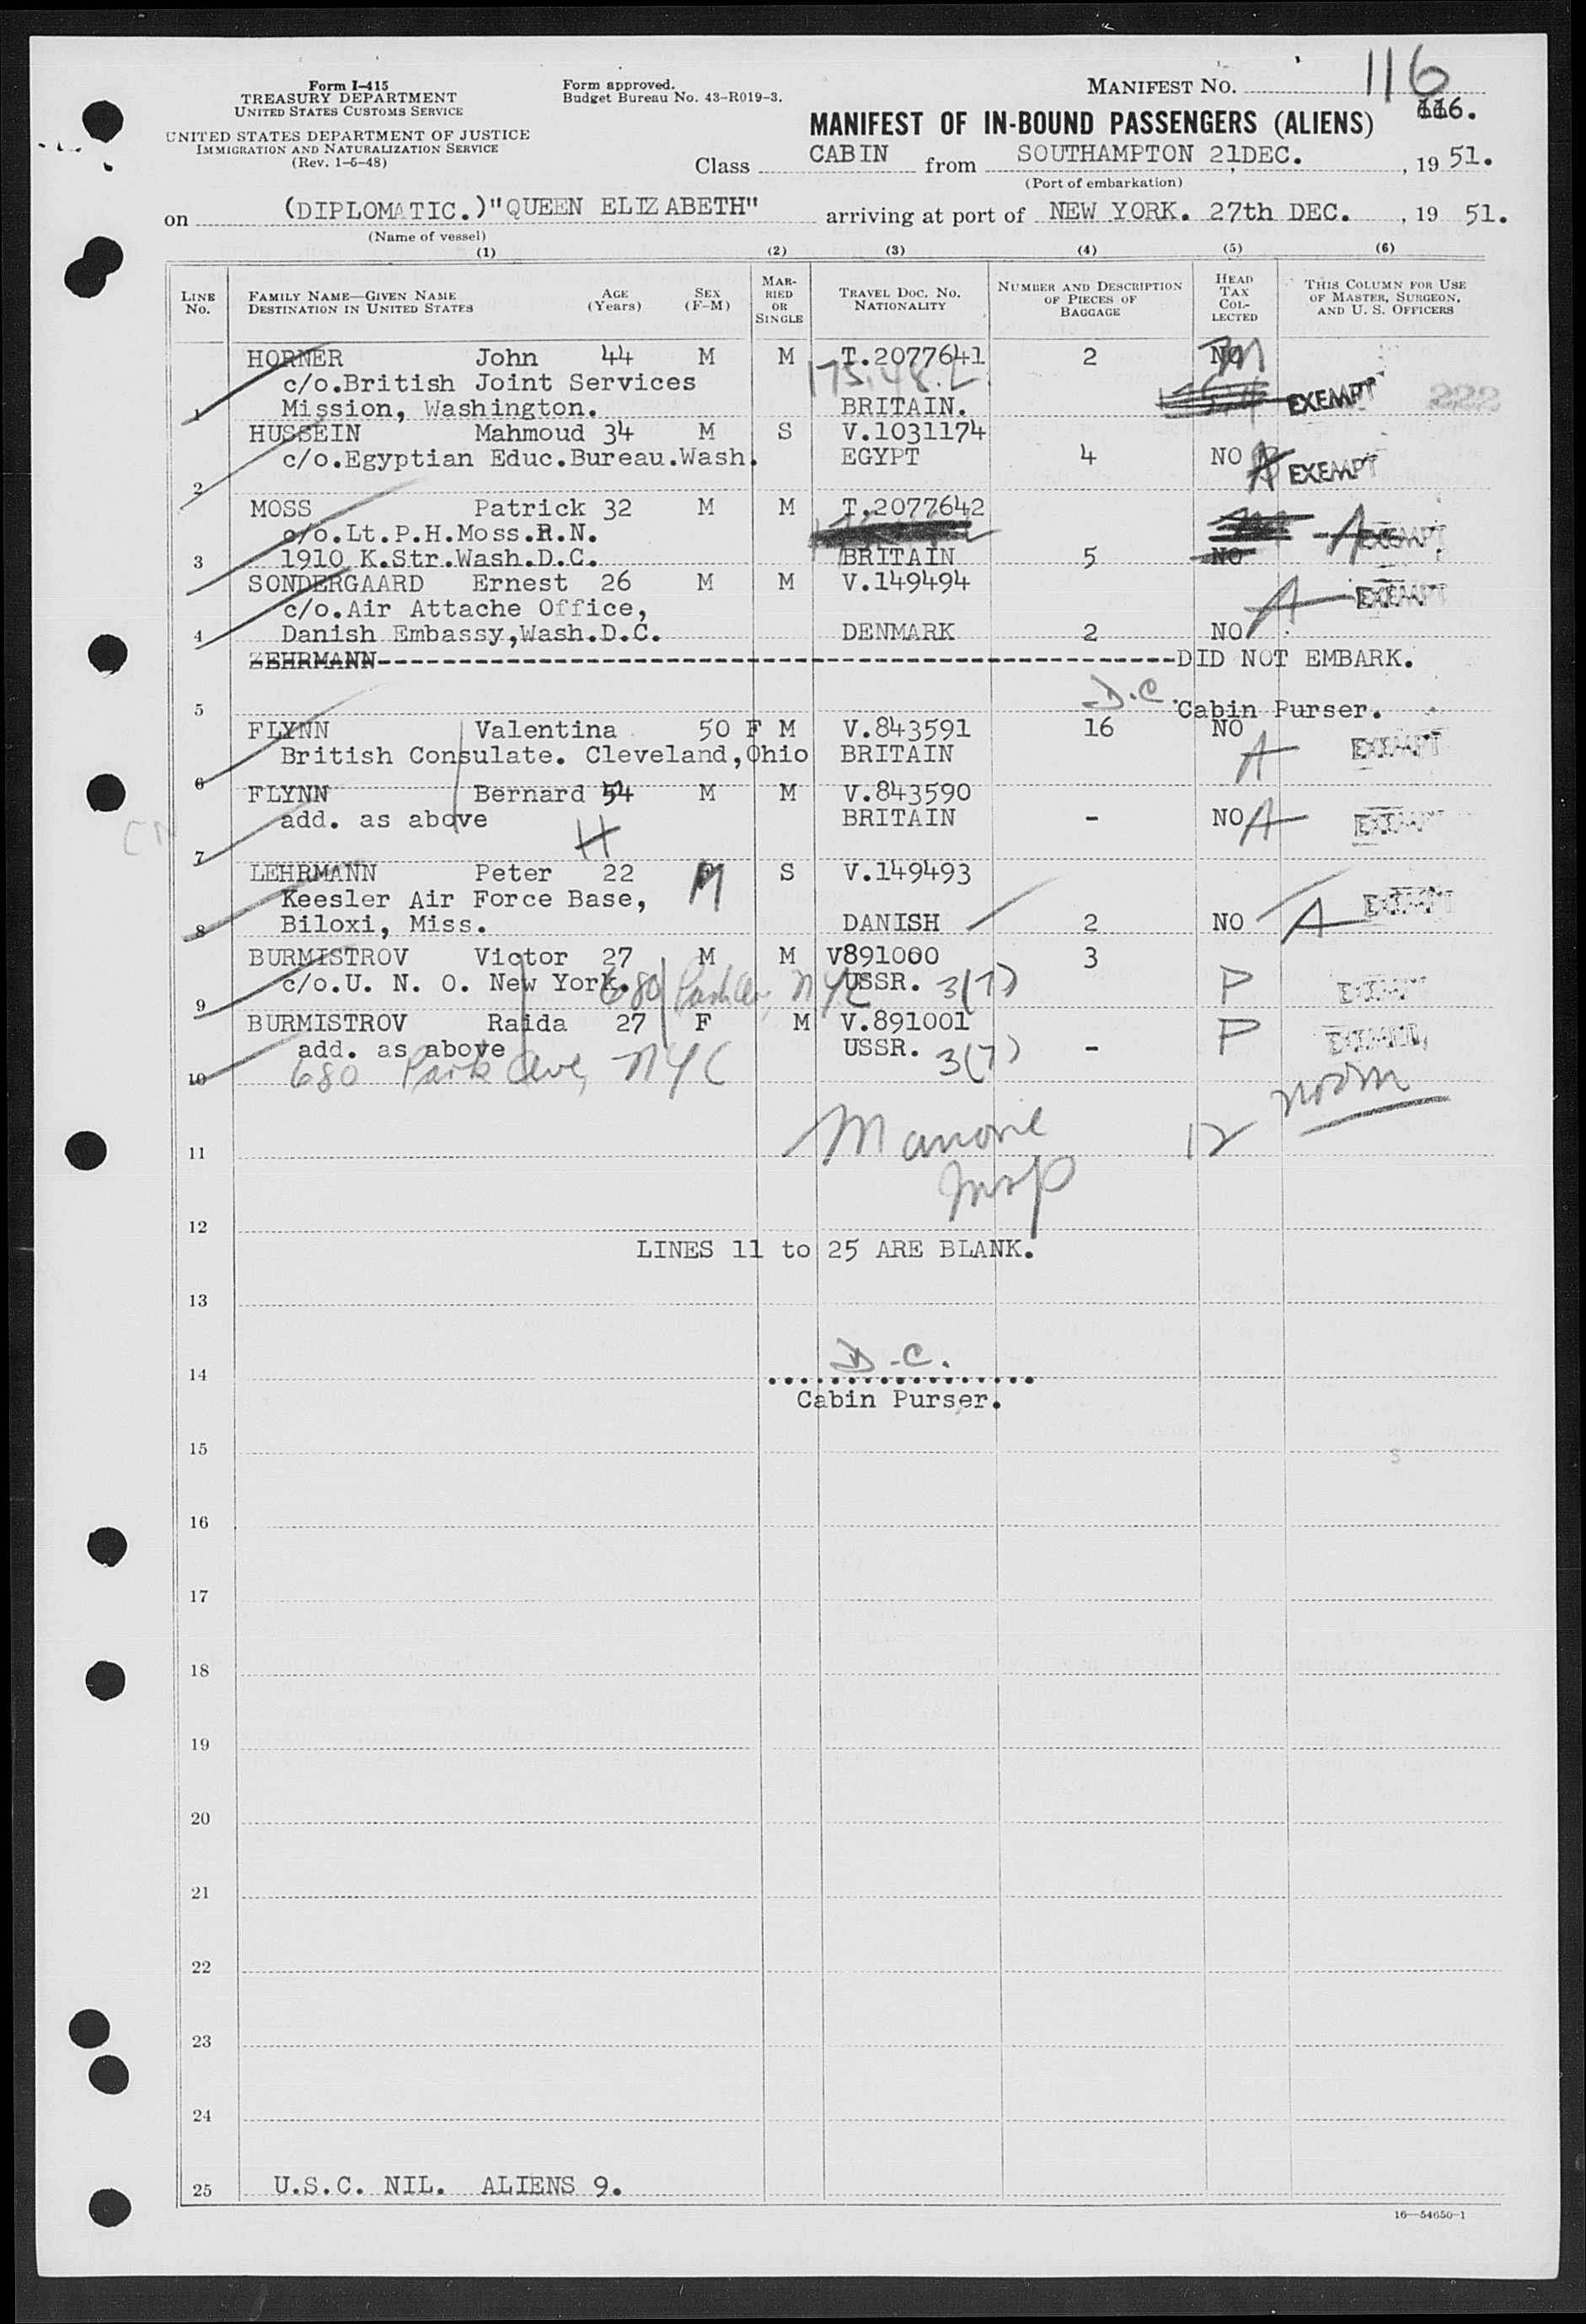 Form I-415
TREASURY DEPARTMENT
UNITED STATES CUSTOMS SERVICE
UNITED STATES DEPARTMENT OF JUSTICE
IMMIGRATION AND NATURALIZATION SERVICE
(Rev. 1-5-48)
Form approved.
Budget Bureau No. 43-R019-3.
MANIFEST No. 116
116.
MANIFEST OF IN-BOUND PASSENGERS (ALIENS)
Class CABIN from SOUTHAMPTON 21DEC. , 19 51.
(Port of embarkation)
on (DIPLOMATIC.)"QUEEN ELIZABETH" arriving at port of NEW YORK. 27th DEC. , 19 51.
(Name of vessel)
(1) (2) (3) (4) (5) (6)
LINE No. FAMILY NAME—GIVEN NAME DESTINATION IN UNITED STATES AGE (Years) SEX (F-M) MARRIED OR SINGLE TRAVEL DOC. No. NATIONALITY NUMBER AND DESCRIPTION OF PIECES OF BAGGAGE HEAD TAX COLLECTED THIS COLUMN FOR USE OF MASTER, SURGEON, AND U. S. OFFICERS
HORNER John 44 M M T.2077641 2 NO
c/o.British Joint Services
1 Mission, Washington. BRITAIN. EXEMPT 222
HUSSEIN Mahmoud 34 M S V.1031174
c/o.Egyptian Educ.Bureau.Wash. EGYPT 4 NO A EXEMPT
2
MOSS Patrick 32 M M T.2077642
c/o.Lt.P.H.Moss.R.N. A EXEMPT
3 1910 K.Str.Wash.D.C. BRITAIN 5 NO
SONDERGAARD Ernest 26 M M V.149494
c/o.Air Attache Office, A EXEMPT
4 Danish Embassy,Wash.D.C. DENMARK 2 NO
ZEHRMANN------------------------------DID NOT EMBARK.
D.C.
5 Cabin Purser.
FLYNN Valentina 50 F M V.843591 16 NO
British Consulate. Cleveland,Ohio BRITAIN A EXEMPT
6
FLYNN Bernard 54 M M V.843590
add. as above BRITAIN - NO A EXEMPT
H
7
LEHRMANN Peter 22 M S V.149493
Keesler Air Force Base, A EXEMPT
8 Biloxi, Miss. DANISH 2 NO
BURMISTROV Victor 27 M M V891000 3
c/o.U. N. O. New York. 680 Park Ave, NYC USSR. 3(7) P EXEMPT
9
BURMISTROV Raida 27 F M V.891001 P EXEMPT
add. as above USSR. 3(7) -
10 680 Park Ave, NYC
12 noon
11
Insp
12
LINES 11 to 25 ARE BLANK.
13
D.C.
14
Cabin Purser.
15
16
17
18
19
20
21
22
23
24
25 U.S.C. NIL. ALIENS 9.
16—54650-1